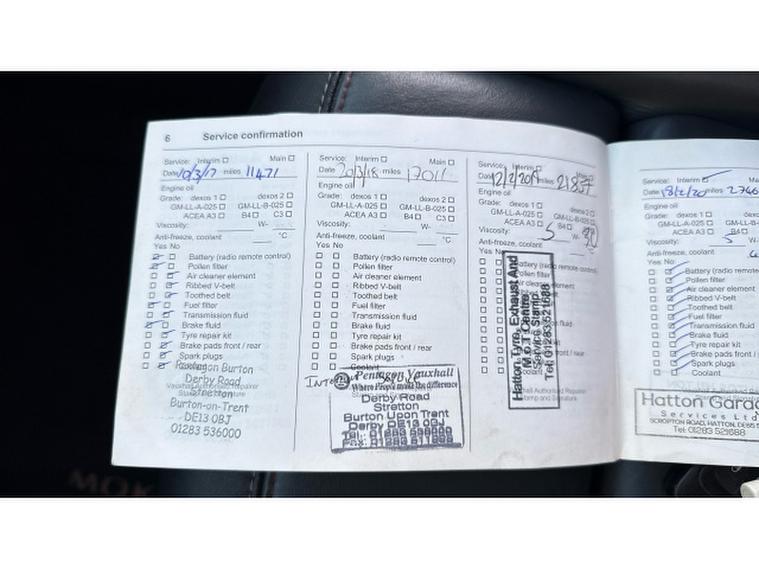 6 Service confirmation
Service: Interim Main
Date 10/3/17 miles 11471
Engine oil
Grade: dexos 1 dexos 2
GM-LL-A-025 GM-LL-B-025
ACEA A3 B4 C3
Viscosity: W-
Anti-freeze, coolant °C
Yes No
Battery (radio remote control)
Pollen filter
Air cleaner element
Ribbed V-belt
Toothed belt
Fuel filter
Transmission fluid
Brake fluid
Tyre repair kit
Brake pads front / rear
Spark plugs
Pentagon Burton
Derby Road
Stretton
Burton-on-Trent
DE13 0BJ
01283 536000
Service: Interim Main
Date 20/3/18 miles 17011
Engine oil
Grade: dexos 1 dexos 2
GM-LL-A-025 GM-LL-B-025
ACEA A3 B4 C3
Viscosity: W-
Anti-freeze, coolant °C
Yes No
Battery (radio remote control)
Pollen filter
Air cleaner element
Ribbed V-belt
Toothed belt
Fuel filter
Transmission fluid
Brake fluid
Tyre repair kit
Brake pads front / rear
Spark plugs
Coolant
Pentagon Vauxhall
Where People make the difference
Derby Road
Stretton
Burton Upon Trent
Derby DE13 0BJ
Service: Interim
Date 12/2/2019 miles 21857
Engine oil
Grade: dexos 1 dexos 2
GM-LL-A-025 GM-LL-B-025
ACEA A3 B4
Viscosity: 5 W- 30
Anti-freeze, coolant
Yes No
Hatton Tyre, Exhaust And
M.O.T Centre
Service Stamp
Tel: 01283 521688
Service: Interim
Date 18/2/20 miles
Engine oil
Grade: dexos 1
GM-LL-A-025
ACEA A3 B4
Viscosity: 5
Anti-freeze, coolant
Yes No
Battery (radio remote
Pollen filter
Air cleaner element
Ribbed V-belt
Toothed belt
Fuel filter
Transmission fluid
Brake fluid
Tyre repair kit
Brake pads front / rear
Spark plugs
Coolant
Hatton Garag
Services Ltd
SCROPTON ROAD, HATTON, DE65 5
Tel: 01283 521688
MOK